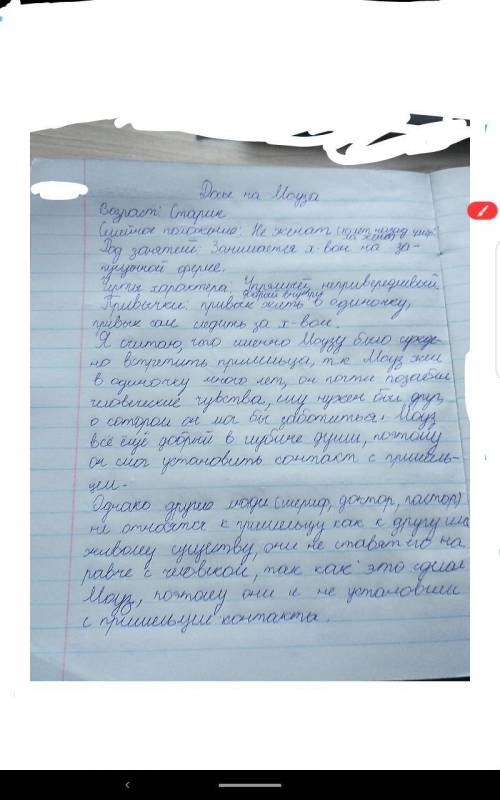 Досье на Моуза
Возраст: Старик
Семейное положение: Не женат (10 лет назад умер-
ла жена)
Род занятий: Занимается х-вом на за-
пущенной ферме.
Черты характера: Упрямый, непривередливый
добрый внутри
Привычки: привык жить в одиночку,
привык сам следить за х-вом.
Я считаю, что именно Моузу было сужде-
но встретить пришельца, т.к Моуз жил
в одиночку много лет, он почти позабыл
человеческие чувства, ему нужен был друг,
о котором он мог бы заботиться. Моуз
всё ещё добрый в глубине души, поэтому
он смог установить контакт с пришель-
цем.
Однако другие люди (шериф, доктор, пастор)
не относятся к пришельцу как к другу или
живому существу, они не ставят его на
равне с человеком, так как это сделал
Моуз, поэтому они и не установили
с пришельцем контакта.